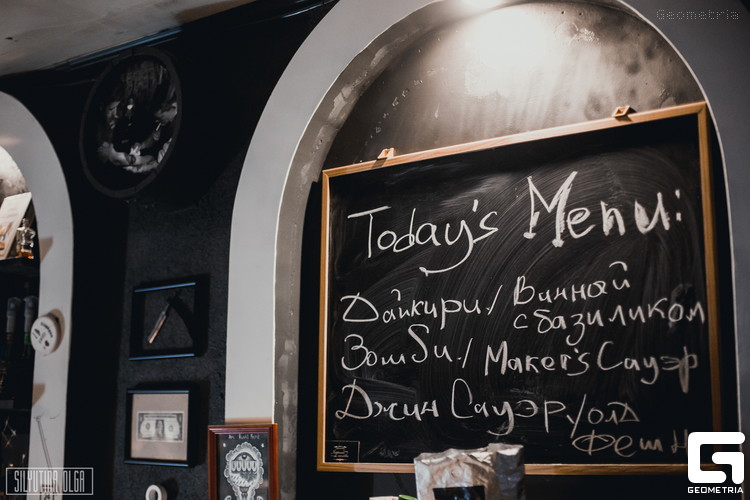 Geometria
Today's Menu:
Дайкири / Винный
с базиликом
Зомби / Maker's Сауэр
Джин Сауэр / Олд
Фешн
SILYUTINA OLGA
GEOMETRIA